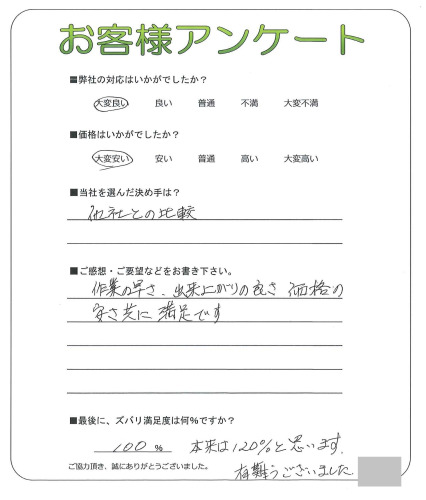 お客様アンケート
■弊社の対応はいかがでしたか？
大変良い 良い 普通 不満 大変不満
■価格はいかがでしたか？
大変安い 安い 普通 高い 大変高い
■当社を選んだ決め手は？
他社との比較
■ご感想・ご要望などをお書き下さい。
作業の早さ、出来上がりの良さ 価格の
安さ共に満足です
■最後に、ズバリ満足度は何％ですか？
100 % 本来は120%と思います。
ご協力頂き、誠にありがとうございました。
有難うございました